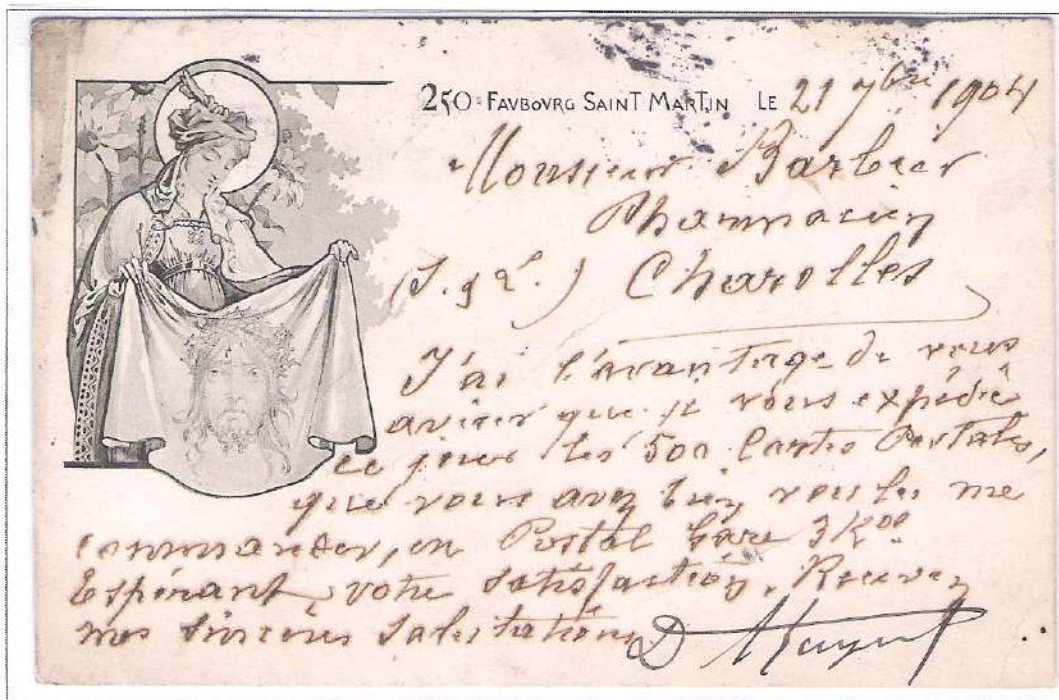 250 FAVBOVRG SAINT MARTIN LE 21 7bre 1904
Monsieur Barbier
Pharmacien
(S. & L.) Charolles
J'ai l'avantage de vous
aviser que je vous expédie
ce jour les 500 Cartes Postales,
que vous avez bien voulu me
commander, en Postal Gare 3K00
Espérant votre satisfaction. Recevez
mes sincères salutations
D